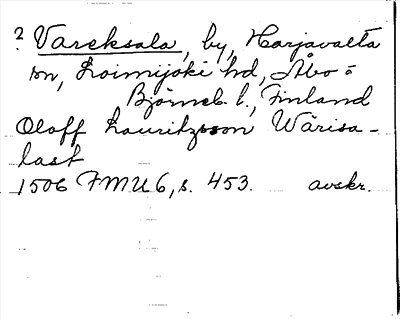 ? Vareksala, by, Harjavalta
sn, Loimijoki hd, Åbo o
Björneb. l., Finland
Oloff Lauritzsson Wärisa-
last
1506 FMU 6, s. 453. avskr.